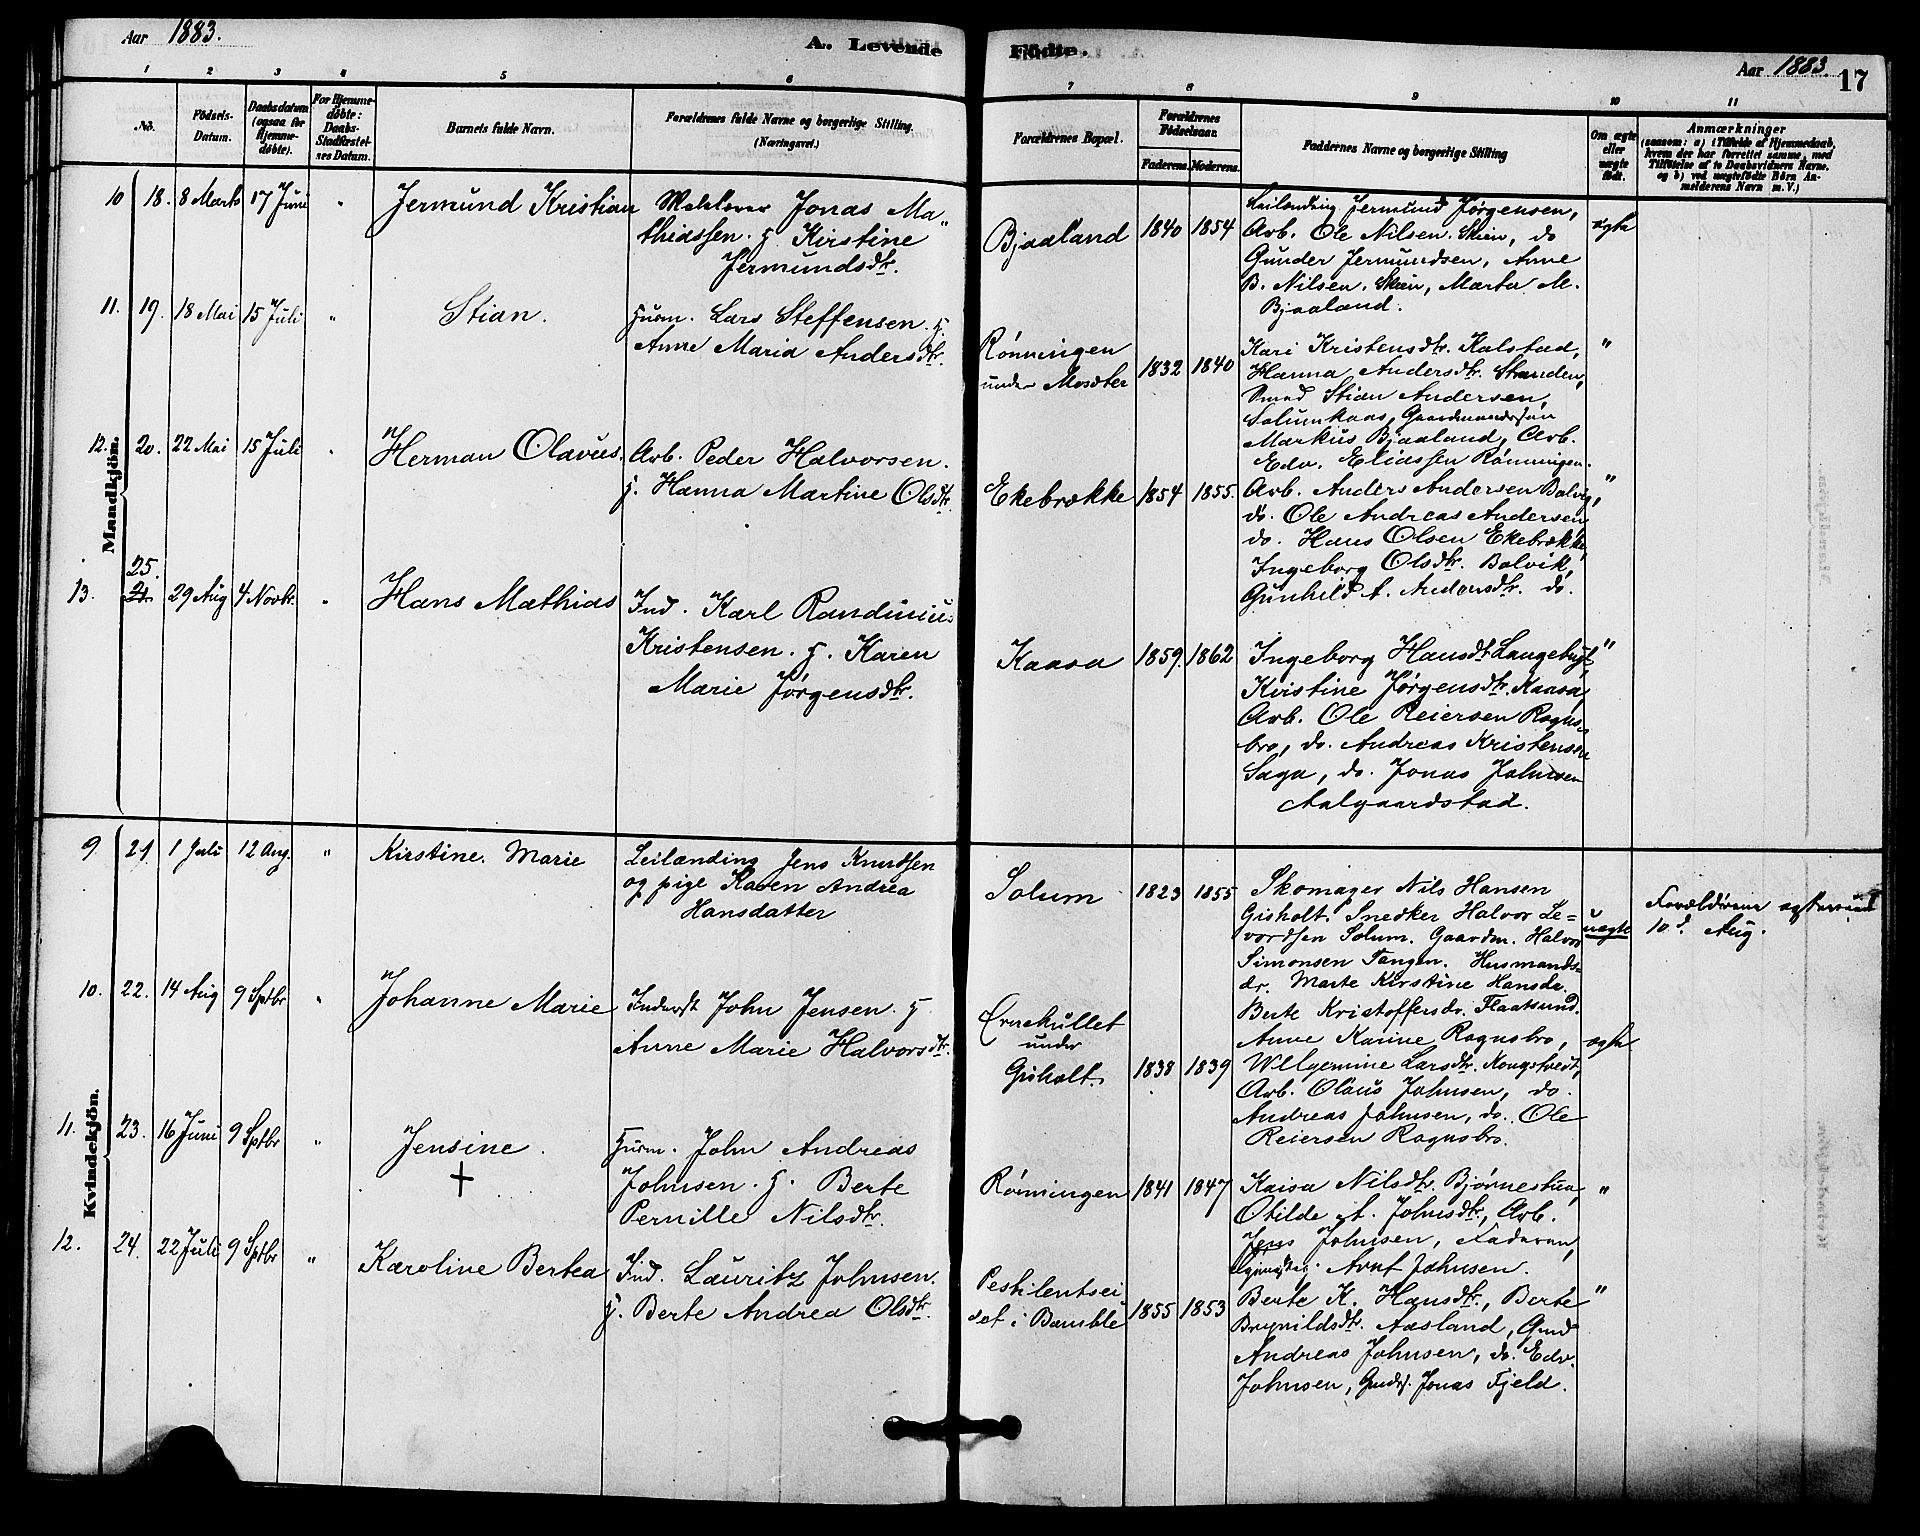 Aar 1883.
A. Levende
Fødte.
Aar 1883.
17
1 2 3 4 5 6
7 8 9 10 11
No.
Fødsels-Datum.
Daabsdatum (ogsaa for Hjemme-døbte).
For Hjemme-døbte: Daabs-Stadfæstel-ses Datum.
Barnets fulde Navn.
Forældrenes fulde Navne og borgerlige Stilling. (Næringsvei.)
Forældrenes Bopæl.
Forældrenes Fødselsaar.
Faderens. Moderens.
Faddernes Navne og borgerlige Stilling
Om ægte eller uægte født.
Anmærkninger
(saasom: a) i Tilfælde af Hjemmedaab, hvem der har forrettet samme, med Tilføielse af to Daabsvidners Navne, og b) ved uægtefødte Børn Anmelderens Navn m. V.)
Mandkjön.
10 18. 8 Marts 17 Juni " Jermund Kristian
Jonas Ma-
thiassen. H. Kirstine
Jermundsdtr.
Bjaaland 1840 1854
Leilænding Jermund Jørgensen,
Arb. Ole Nilsen. Skien, do
Gunder Jermundsen, Anne
B. Nilsen. Skien, Marta M.
Bjaaland.
ægte
11. 19. 18 Mai 15 Juli " Stian.
Husm. Lars Steffensen. H.
Anne Maria Andersdtr.
Rønningen
under Mosæter 1832 1840
Kari Kristensdtr. Kalstad,
Hanna Andersdtr. Stranden,
Smed Stian Andersen,
Solumkaas, Gaardmandssøn
Markus Bjaaland, Arb.
Edv. Eliassen Rønningen.
"
12. 20. 22 Mai 15 Juli " Herman Olavus.
Arb. Peder Halvorsen.
H. Hanna Martine Olsdtr.
Ekebrække 1854 1855.
Arb. Anders Andersen Bolvig,
do. Ole Andreas Andersen
do. Hans Olsen Ekebrække,
Ingeborg Olsdtr. Bolvik,
Gunhild A. Andersdtr. do.
"
25.
13. 21. 29 Aug 4 Novbr. " Hans Mathias
Ind. Karl Randinius
Kristensen. H. Karen
Marie Jørgensdtr.
Kaasa 1859. 1862
Ingeborg Hansdtr Langebugt,
Kristine Jørgensdtr. Kaasa,
Arb. Ole Reiersen Rogns-
bro, do. Andreas Kristensen
Saga, do. Jonas Johnsen
Aalgaardstad.
"
Kvindekjön.
9 21. 1 Juli 12 Aug. " Kirstine. Marie
Leilænding Jens Knudsen
og pige Karen Andrea
Hansdatter
Solum 1823 1855
Skomager Nils Hansen
Gisholt. Snedker Halvor Le-
vordsen Solum. Gaardm. Halvor
Simonsen Tangen. Husmands-
dr. Marte Kirstine Hansdr.
Berte Kristoffersdr. Flaatsund.
uægte
Forældrene
10d. Aug.
10. 22. 14 Aug 9 Sptbr " Johanne Marie
Inderst John Jensen. H
Anne Marie Halvorsdtr.
Ørnekullet
under
Gisholt. 1838 1839
Anne Karine Rognsbro,
Wilgermine Larsdtr.
Arb. Olaus Johnsen, do.
Andreas Johnsen, do. Ole
Reiersen Rognsbro.
ægte
11. 23. 16 Juni 9 Sptbr " Jensine.
+
Husm. John Andreas
Johnsen. H. Berte
Pernille Nilsdtr.
Rønningen 1841 1847
Kaisa Nilsdtr. Bjørnestua,
Otilde A. Johnsdtr, Arb.
Jens Johnsen, Faderen,
Arnt Johnsen.
"
12. 24. 22 Juli 9 Sptbr " Karoline Bertea
Ind. Lauritz Johnsen.
H. Berte Andrea Olsdtr.
Pestilentsei
det i Bamble 1855 1853
Berte K. Hansdtr, Berte
Brynildsdtr. Aasland, Gmd
Andreas Johnsen, do. Edv.
Johnsen, Gmds. Jonas Fjeld.
"